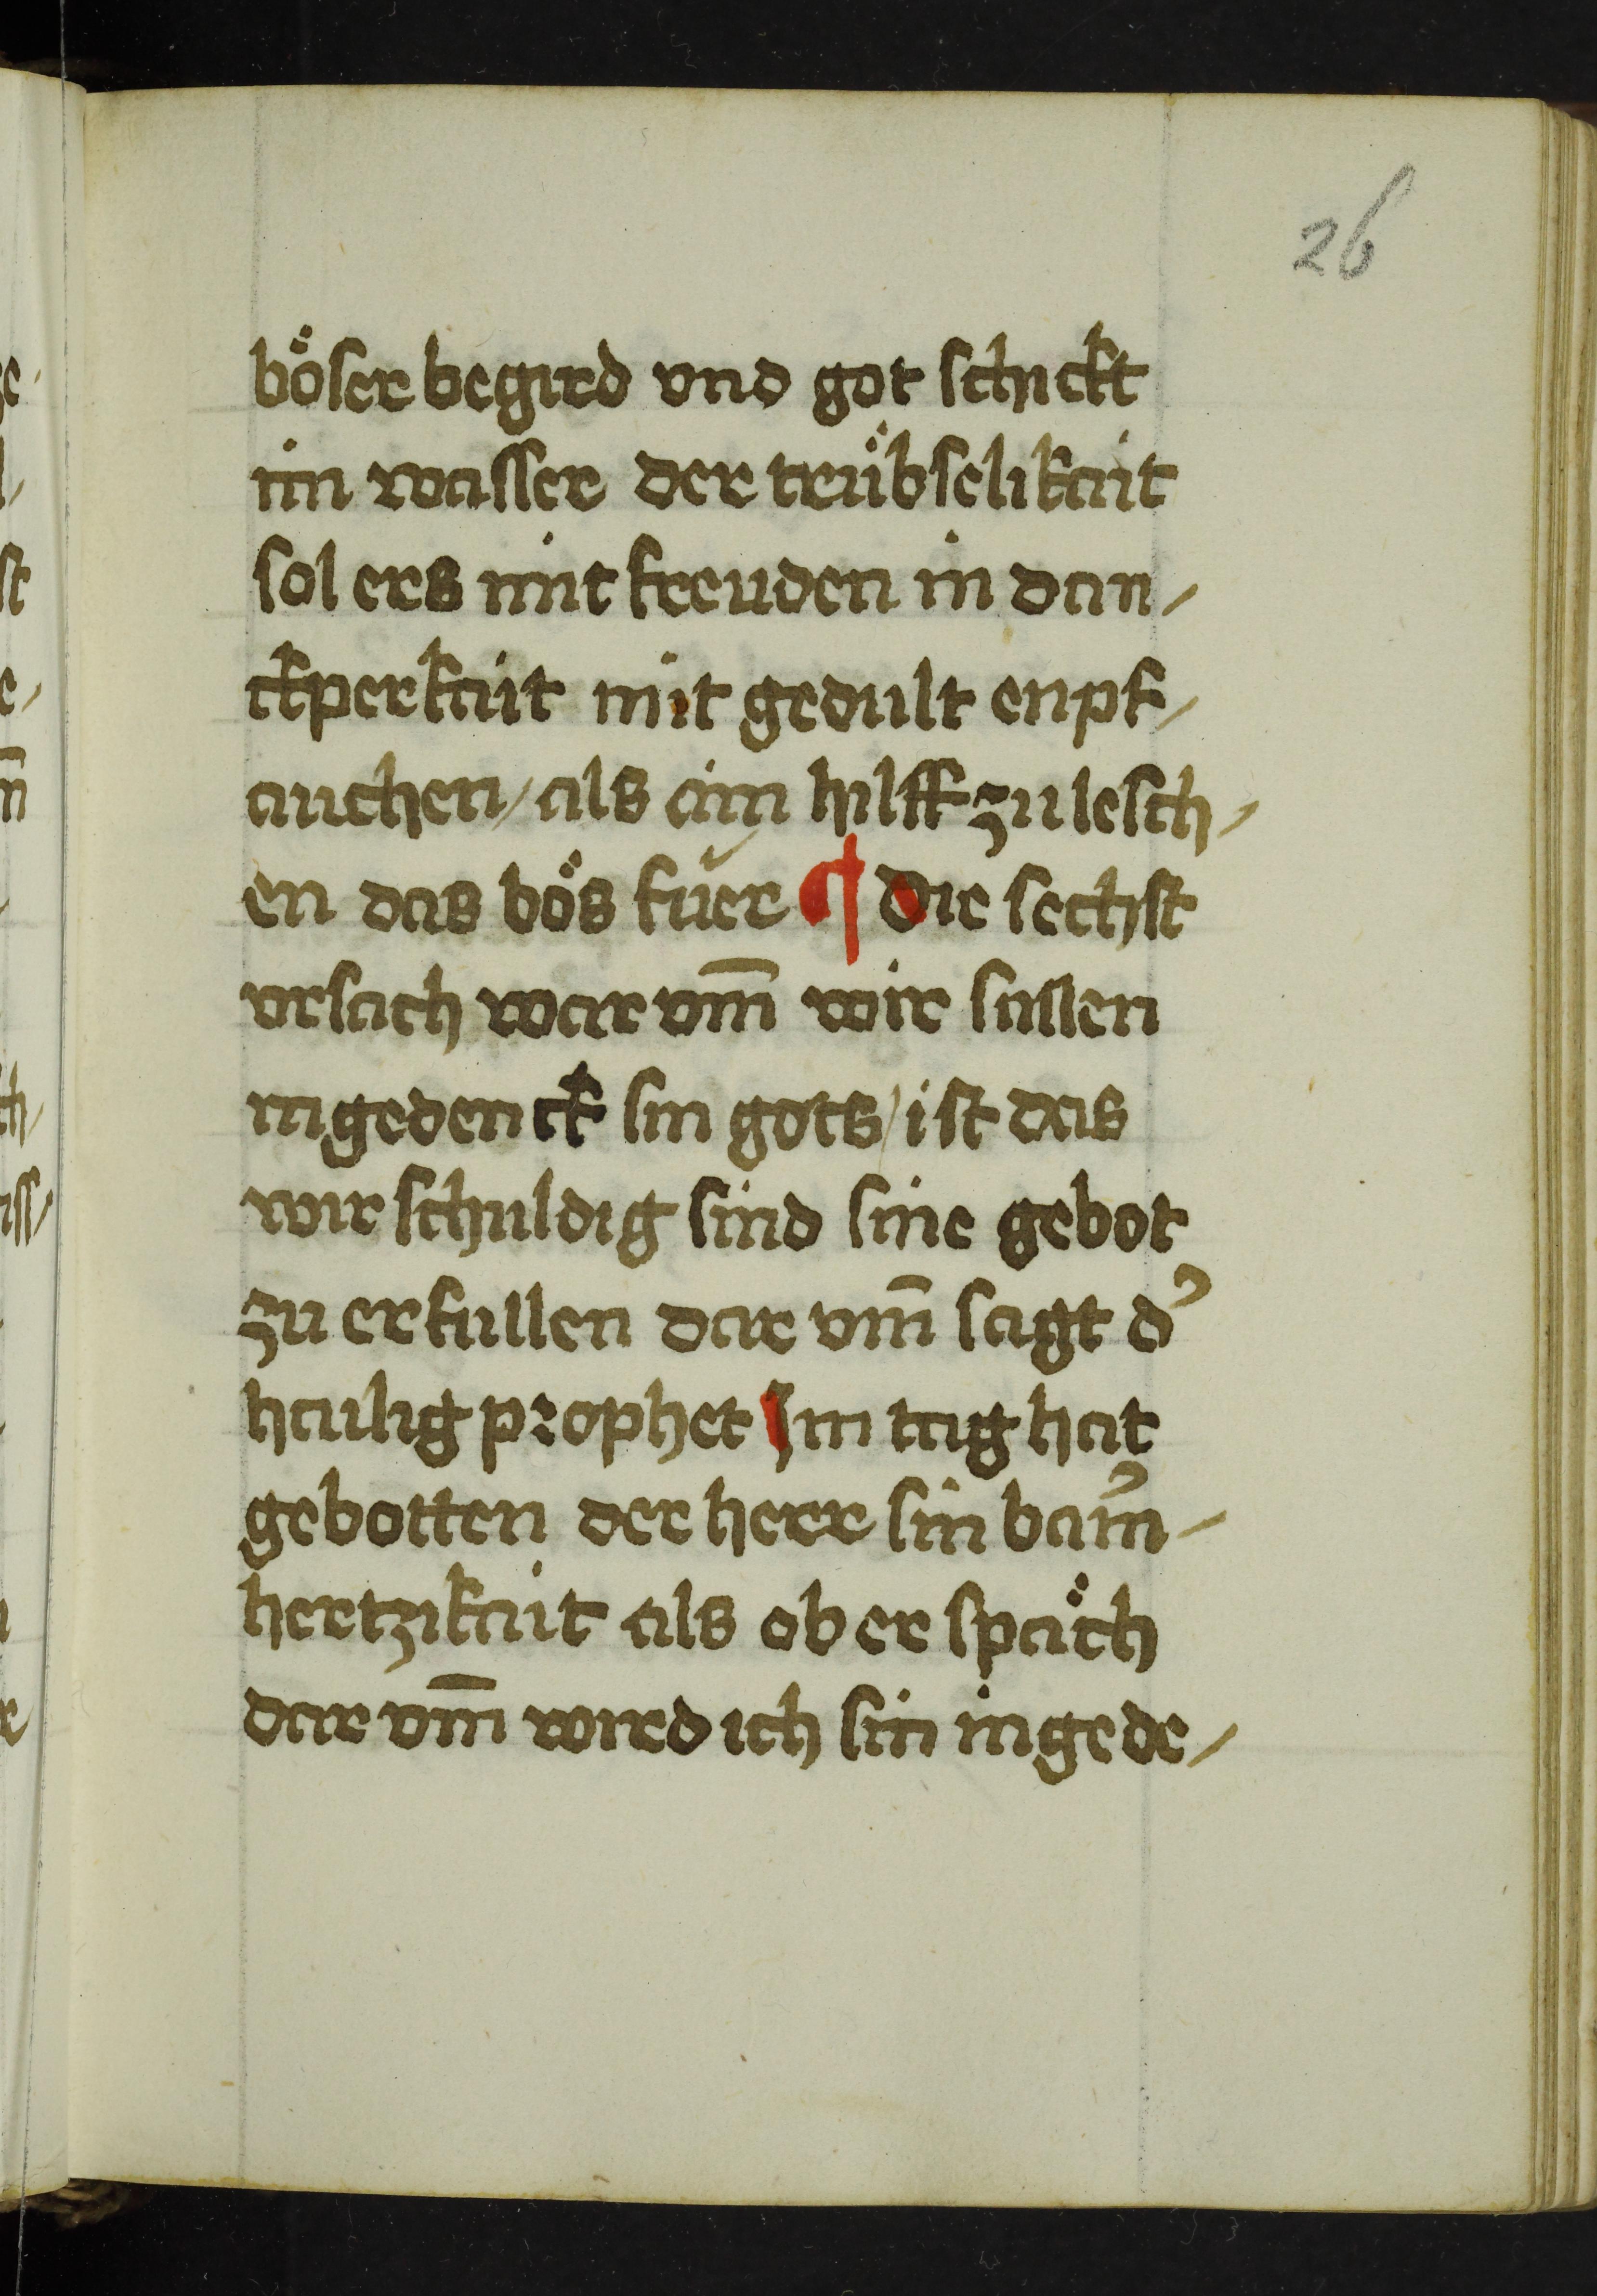 26
böser begird vnd got schickt
im wasser der trübselikait
sol ers mit freuden in dan⸗
ckperkait mit gedult enpf⸗
auchen / als aim hilff zu lesch⸗
en das bös fuer ¶ Die sechst
vrsach war vm̄ wir sullen
ingedenck sin gots / ist das
wir schuldig sind sine gebot
zu erfullen dar vm̄ sagt d᾽
hailig prophet Im tag hat
gebotten der herr sin bam᾽⸗
hertzikait als ob er späch
dar vm̄ wird ich sin ingede⸗